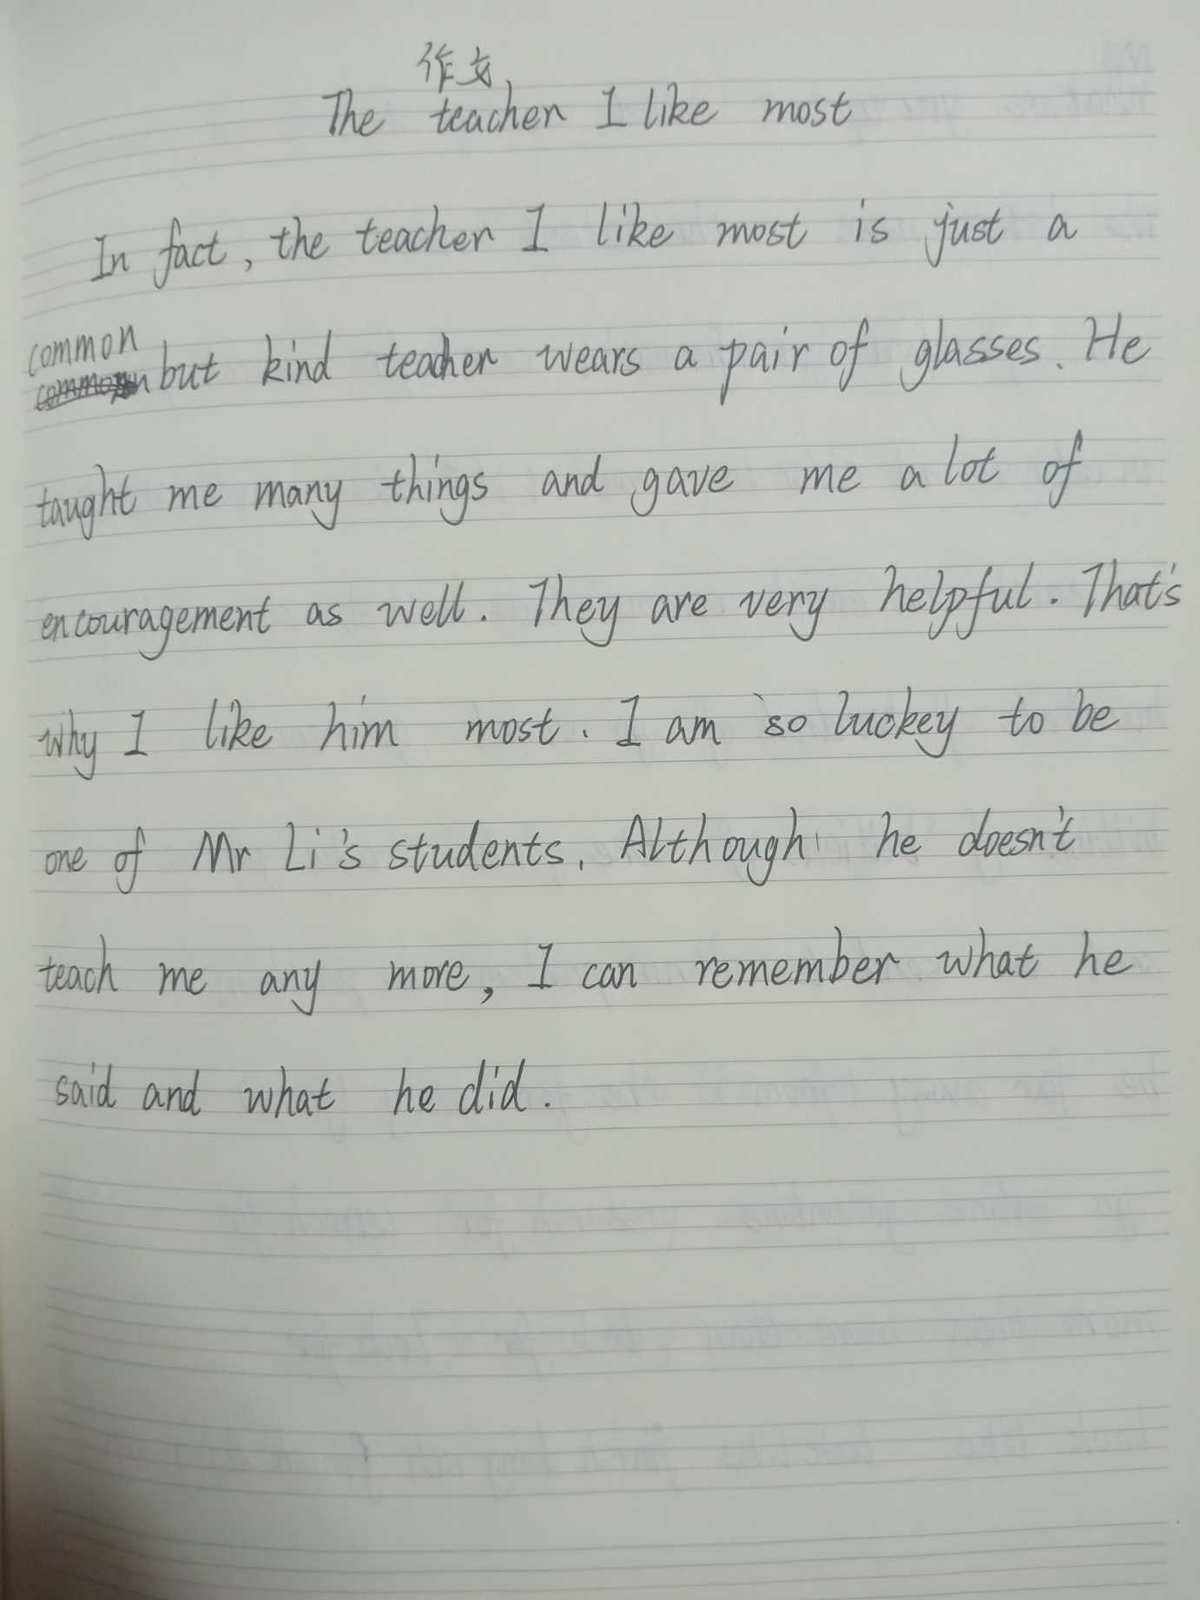 作文
The teacher I like most
In fact, the teacher I like most is just a
common
but kind teacher wears a pair of glasses. He
taught me many things and gave me a lot of
encouragement as well. They are very helpful. That's
why I like him most. I am so luckey to be
one of Mr Li's students. Although he doesn't
teach me any more, I can remember what he
said and what he did.